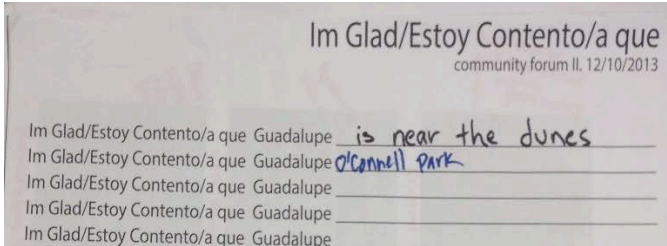 Im Glad/Estoy Contento/a que
community forum II. 12/10/2013
Im Glad/Estoy Contento/a que Guadalupe is near the dunes
Im Glad/Estoy Contento/a que Guadalupe O'Connell Park
Im Glad/Estoy Contento/a que Guadalupe
Im Glad/Estoy Contento/a que Guadalupe
Im Glad/Estoy Contento/a que Guadalupe